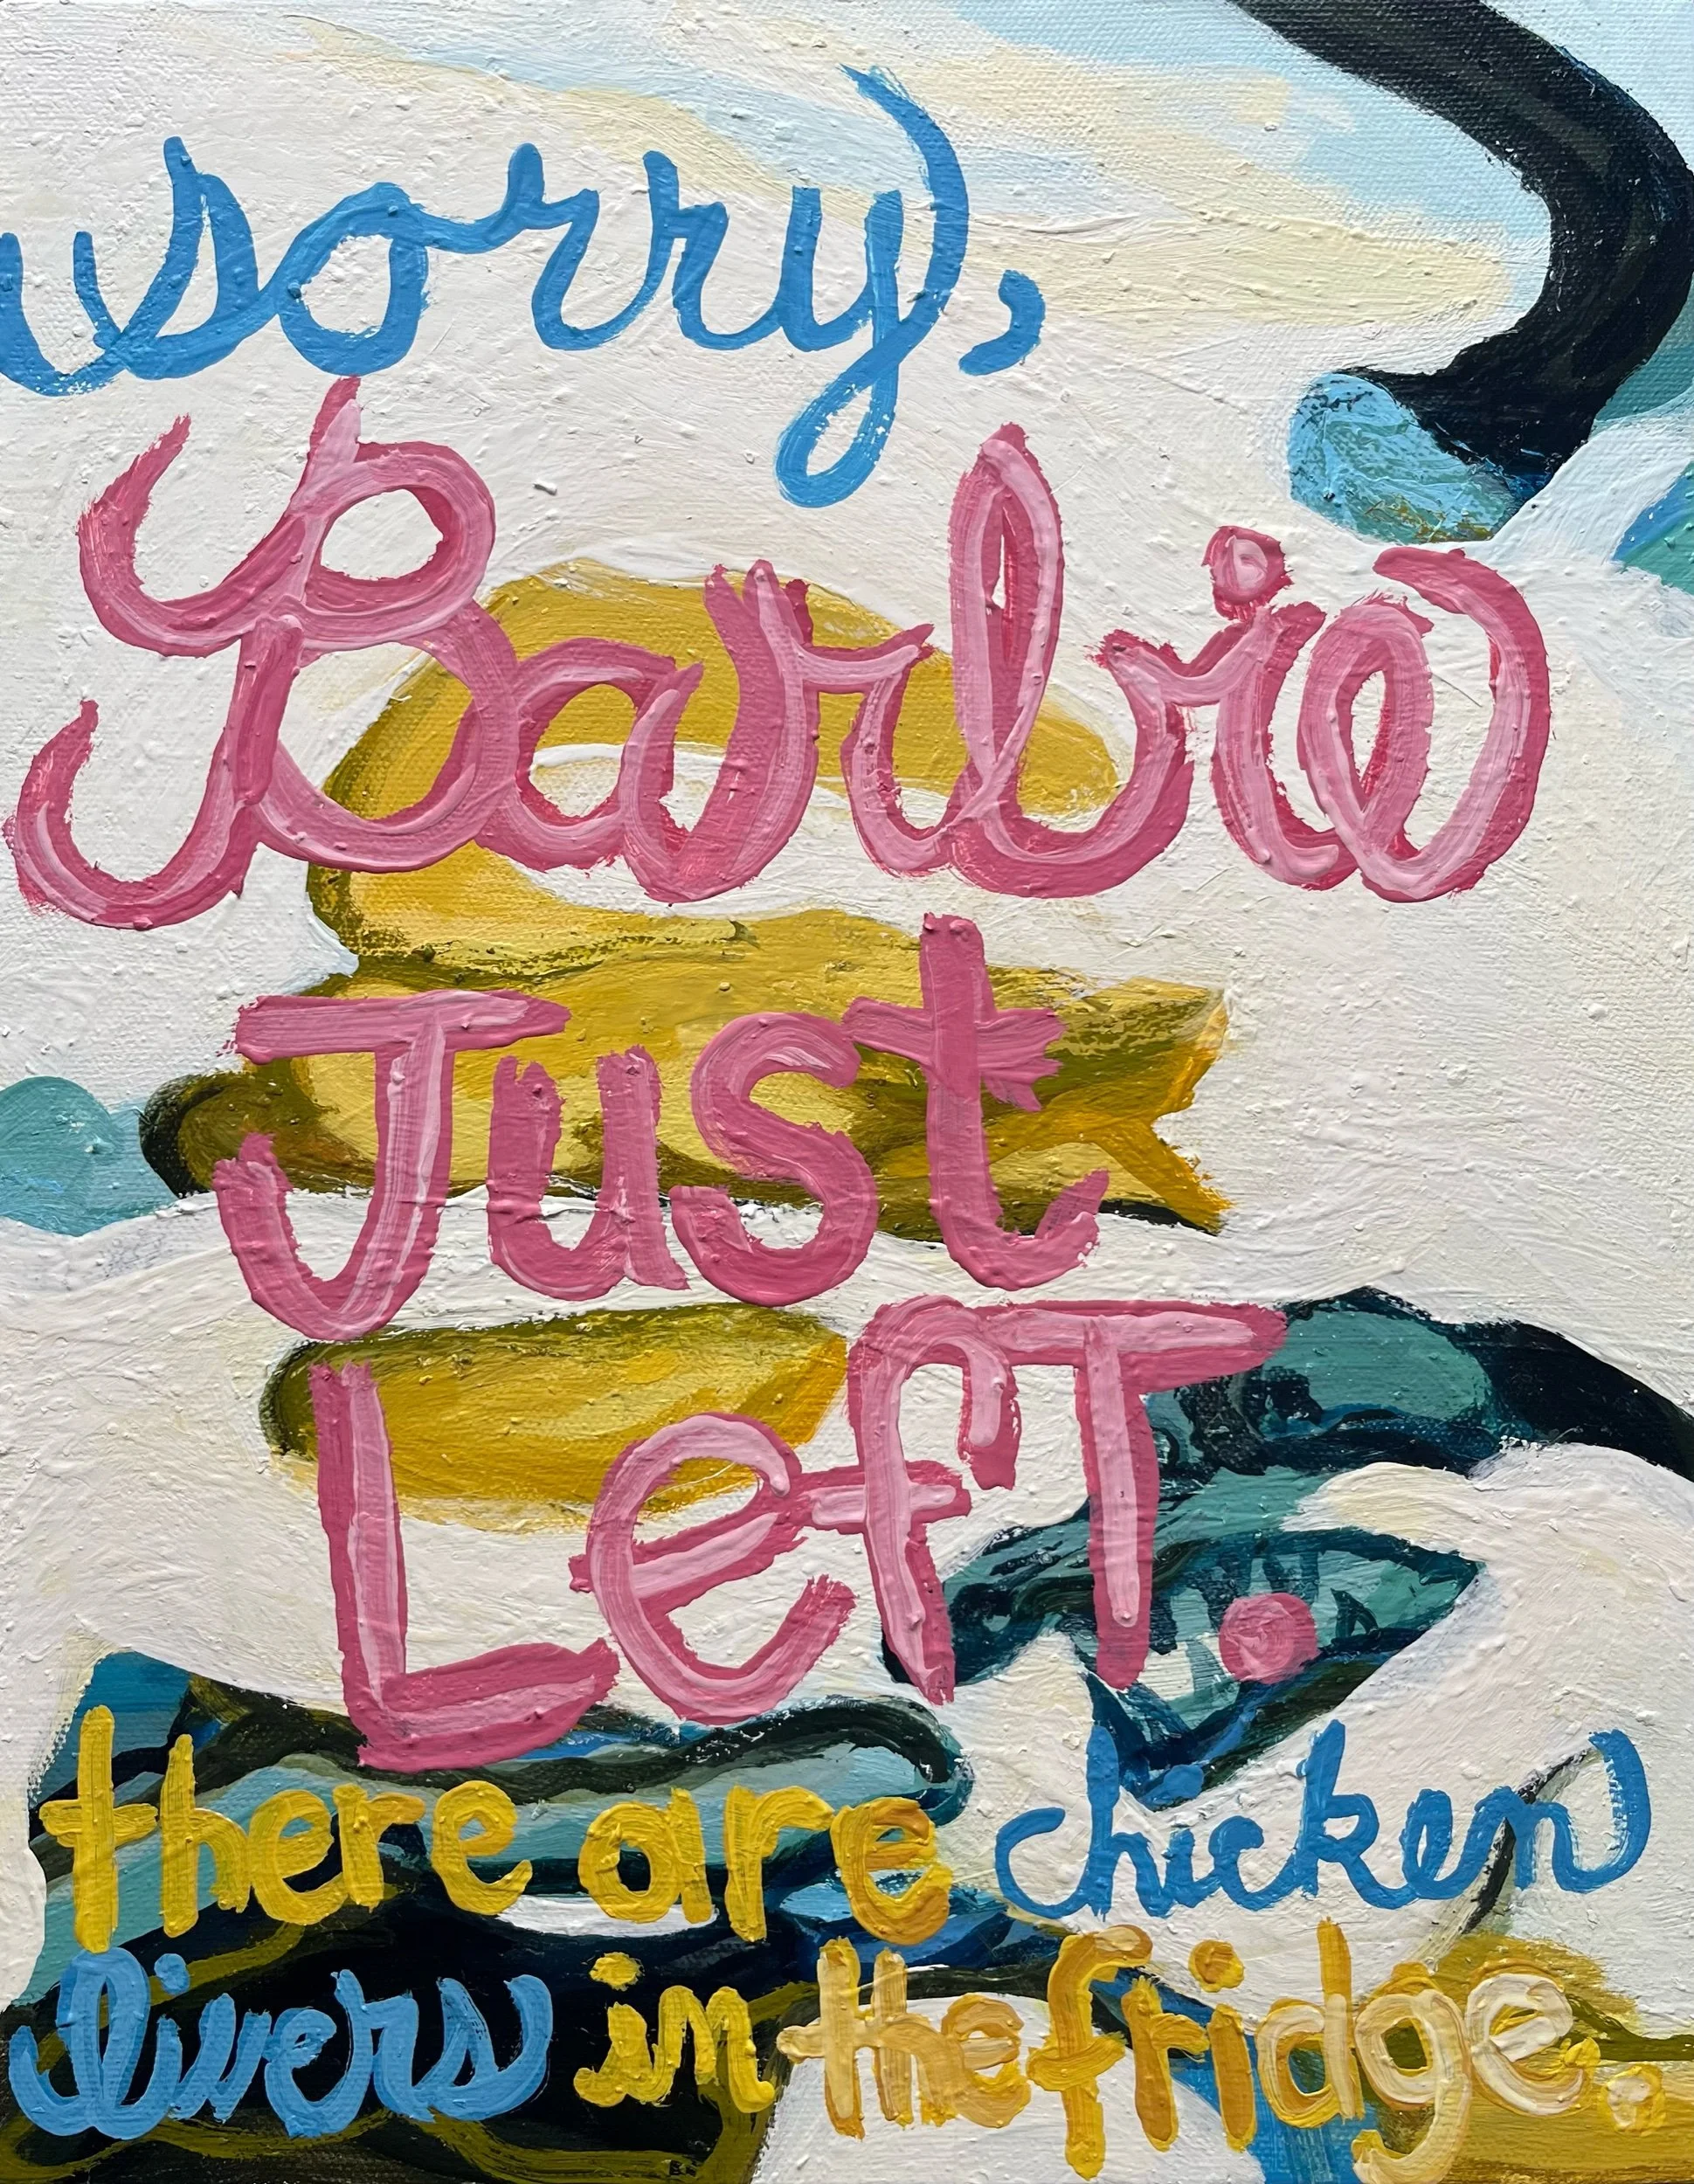 sorry,
Barbie
Just
Left.
there are chicken
livers in the fridge.